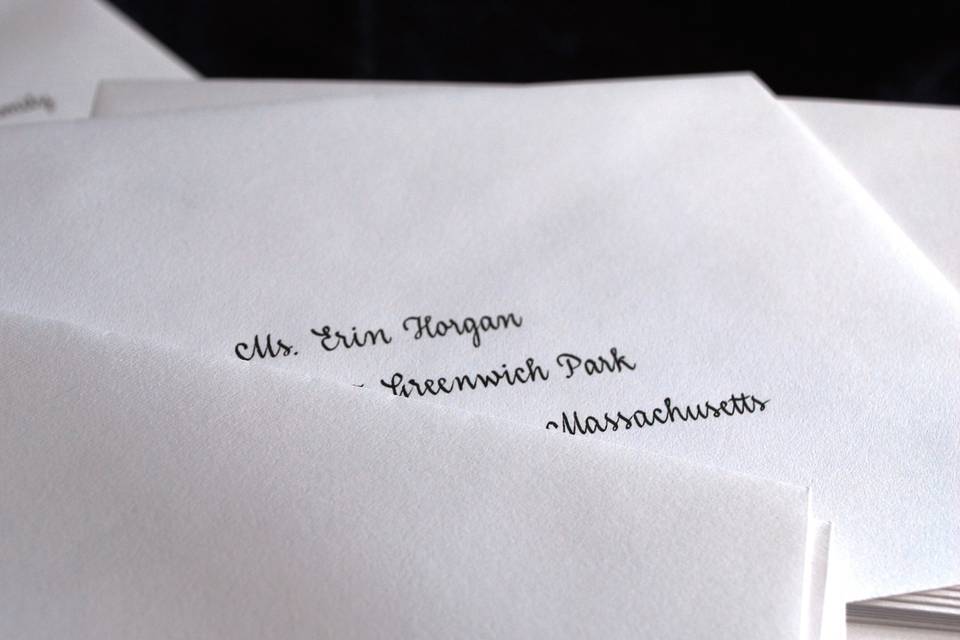 Ms. Erin Horgan
Greenwich Park
Massachusetts